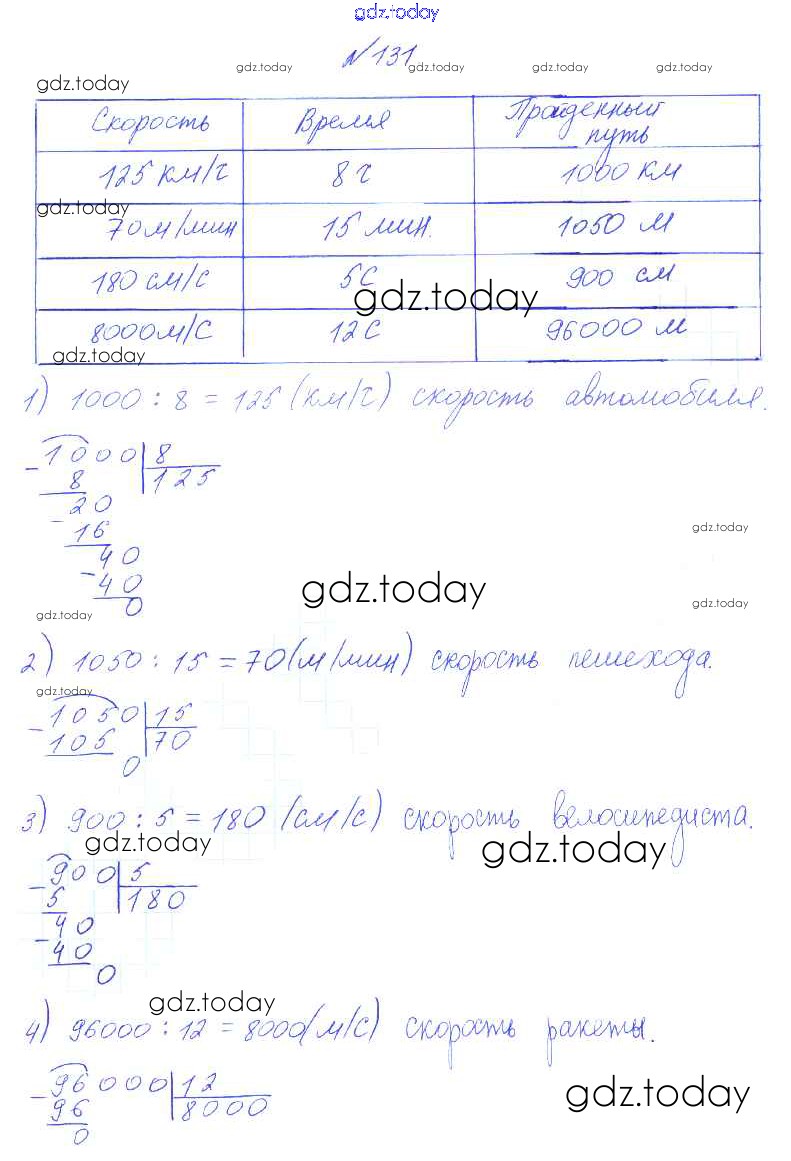 gdz.today
№131
gdz.today gdz.today gdz.today gdz.today
gdz.today
Скорость Время Пройденный путь
125 км/ч 8 ч 1000 км
gdz.today
70 м/мин 15 мин. 1050 м
180 см/с 5 с 900 см
gdz.today
8000 м/с 12 с 96000 м
gdz.today
1) 1000 : 8 = 125 (км/ч) скорость автомобиля.
- 1000 8
8 125
20
- 16
gdz.today
40
- 40
gdz.today
0
gdz.today
gdz.today
2) 1050 : 15 = 70 (м/мин) скорость пешехода.
gdz.today
- 1050 15
105 70
0
3) 900 : 5 = 180 (см/с) скорость велосипедиста.
gdz.today gdz.today
- 900 5
5 180
40
- 40
0
gdz.today
4) 96000 : 12 = 8000 (м/с) скорость ракеты.
- 96000 12
96 8000
gdz.today
0